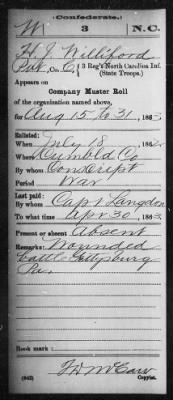 Confederate.
W 3 N.C.
H. J. Williford
Pvt., Co. C, 3 Reg't North Carolina Inf.
(State Troops.)
Appears on
Company Muster Roll
of the organization named above,
for Aug 15 to 31, 1863.
Enlisted:
When July 18, 1862.
Where Cumbld Co
By whom Conscript
Period War
Last paid:
By whom Capt Langdon
To what time Apr 30, 1863.
Present or absent Absent
Remarks: Wounded
battle Gettysburg
Pa.
Book mark:
(642) Copyist.